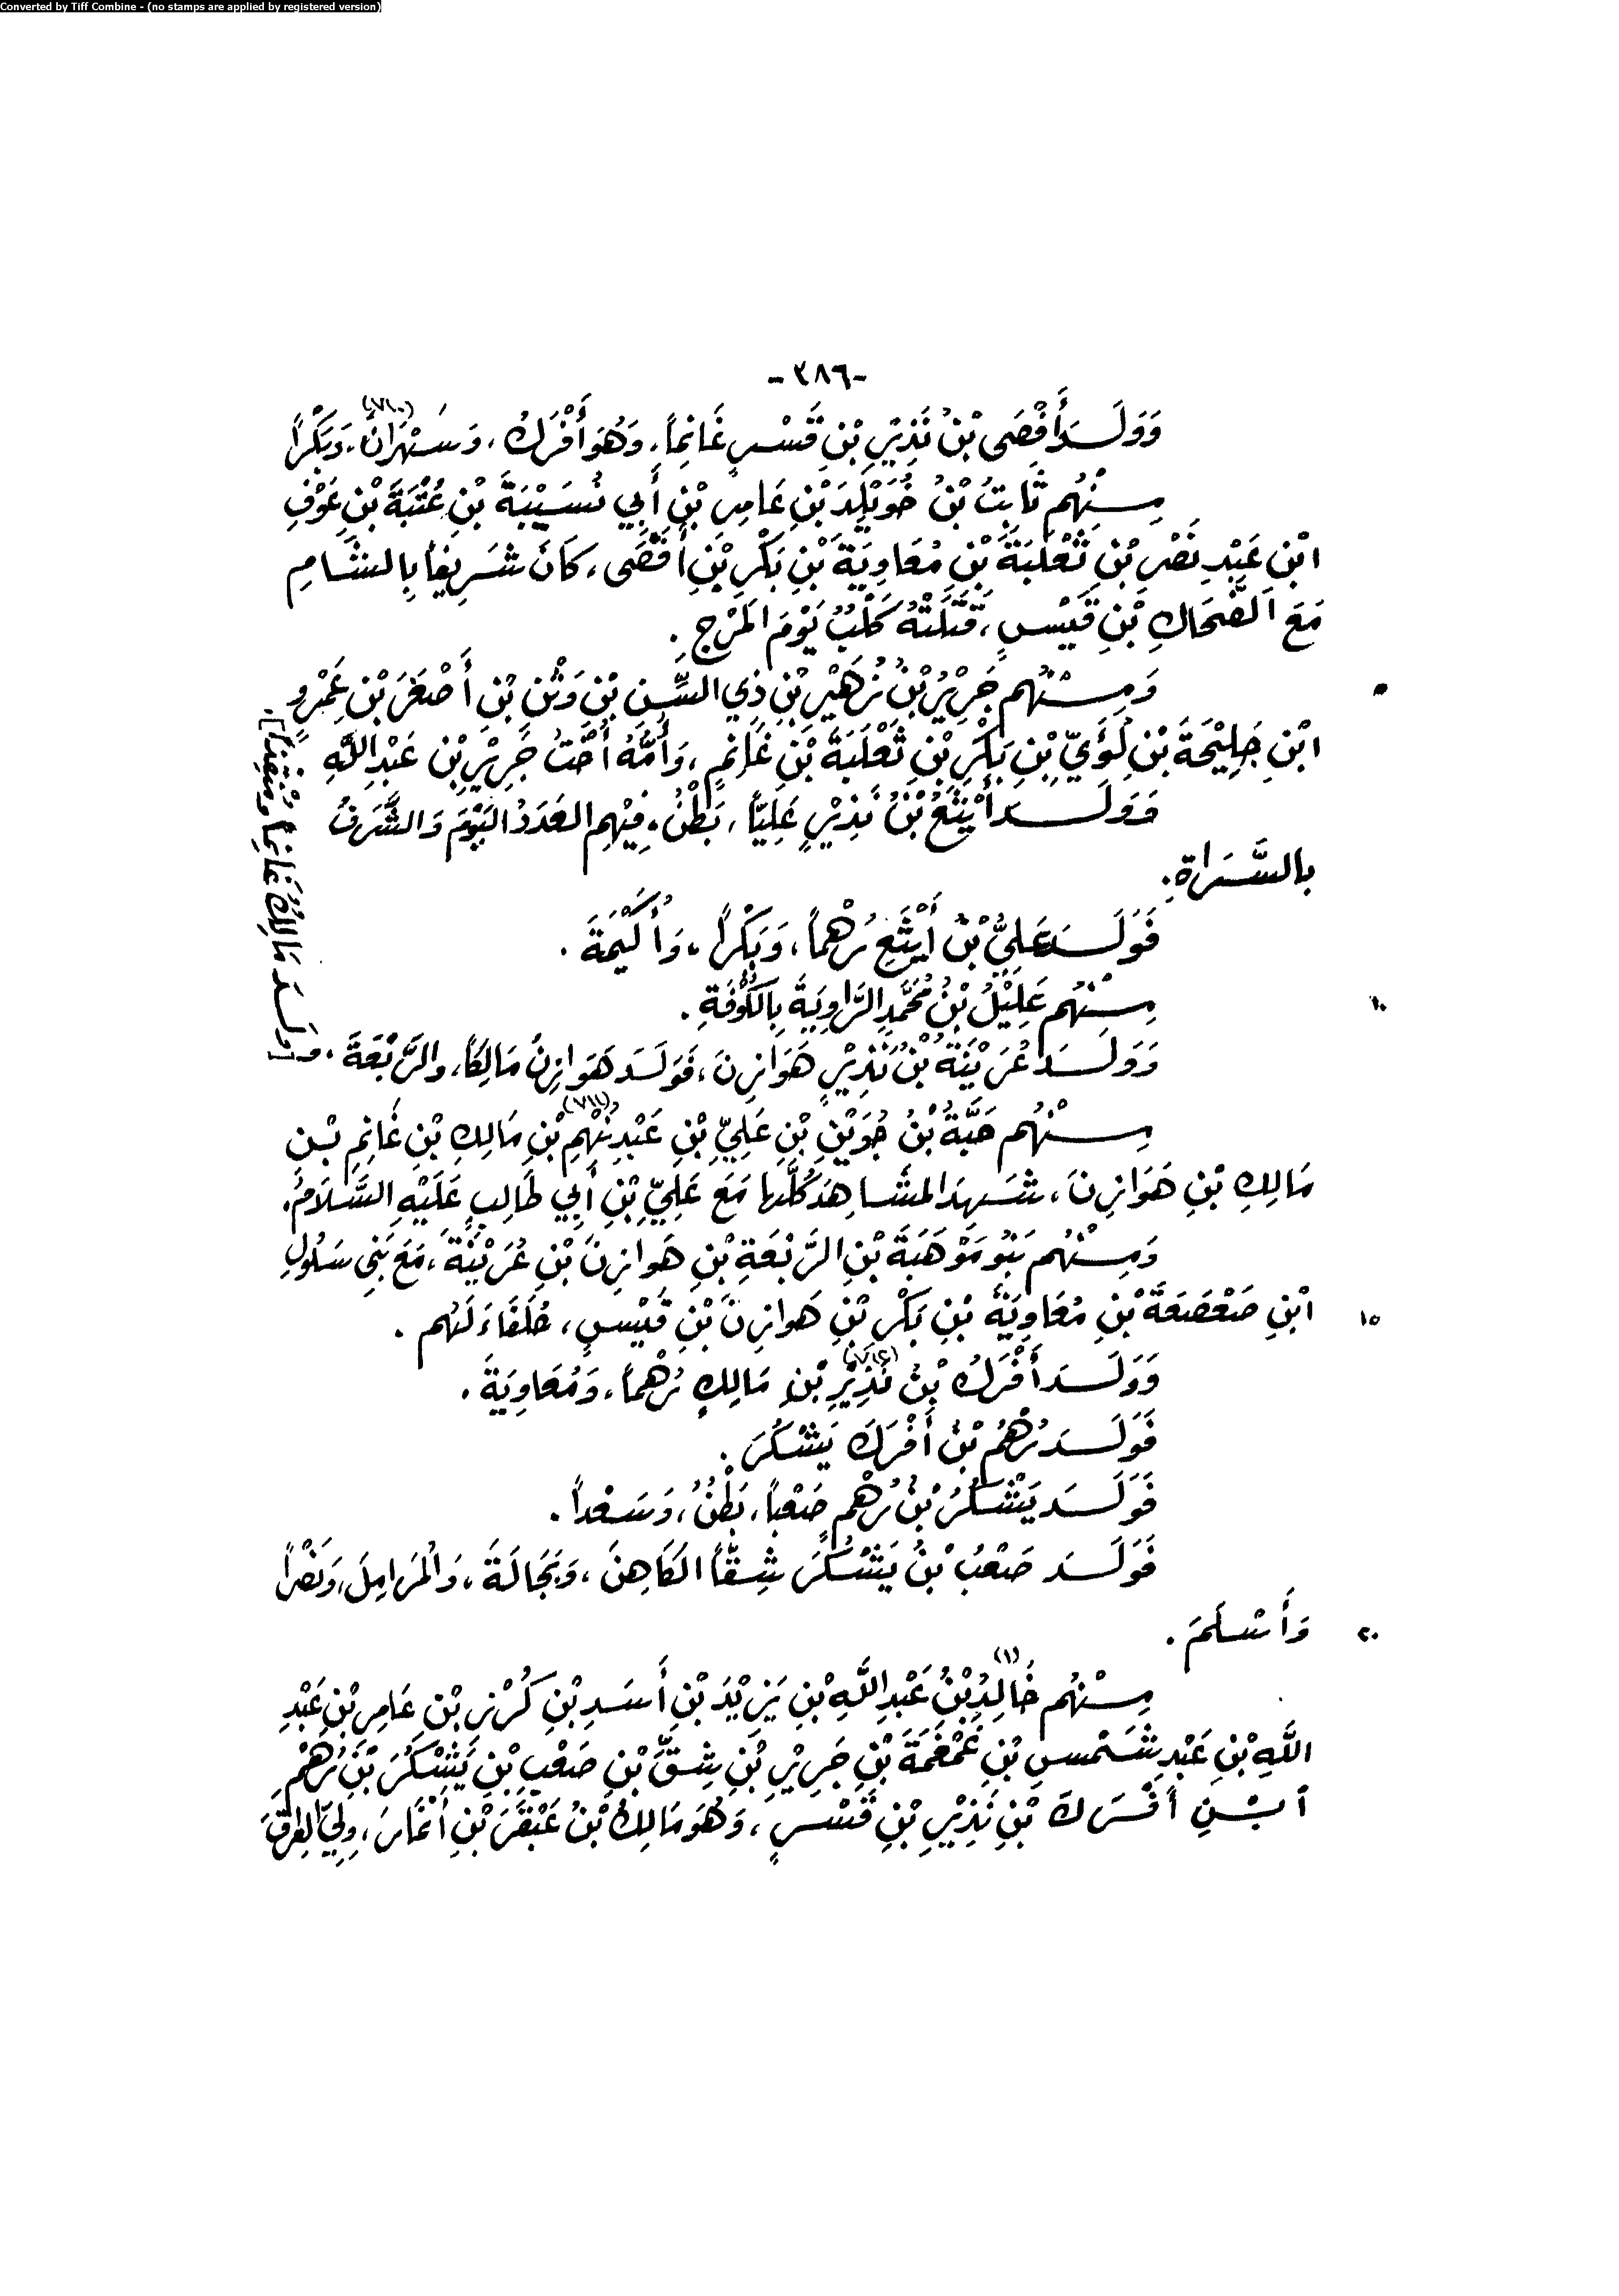 Converted by Tiff Combine - (no stamps are applied by registered version)
-٣٨٦-
وَوَلَدَ أَفْصَى بْنُ نَذِيْرِ بْنِ قَسْرٍ غَانِماً، وَهُوَ أَفْرَكُ، وَسَهْرَانَ (٧١٠)، وَبَكْراً
مِنْهُم ثَابِتُ بْنُ خُوَيْلِدَ بْنِ عَامِرِ بْنِ أَبِي نُسَيْبَةَ بْنِ عُتْبَةَ بْنِ عَوْفِ
ابْنِ عَبْدِ نَصْرِ بْنِ ثَعْلَبَةَ بْنِ مُعَاوِيَةَ بْنِ بَكْرِ بْنِ أَفْصَى، كَانَ شَرِيفاً بِالشَّامِ
مَعَ الضَّحَاكِ بْنِ قَيْسٍ، قَتَلَتْهُ كَلْبُ يَوْمَ المَرْجِ.
٥ وَمِنْهُم جَرِيْرُ بْنُ زُهَيْرِ بْنِ ذِي السِّنِّ بْنِ وَثْنِ بْنِ أَصْغَرَ بْنِ عَمْرِو
ابْنِ جَلِيْحَةَ بْنِ لُؤَيِّ بْنِ بَكْرِ بْنِ ثَعْلَبَةَ بْنِ غَانِمٍ، وَأُمُّهُ أُخْتُ جَرِيْرِ بْنِ عَبْدِ اللَّهِ
وَوَلَدَ أَيْثَعُ بْنُ نَذِيْرٍ عَلِيّاً، بَطْنٌ، فِيْهِم العَدَدُ اليَوْمَ وَالشَّرَفُ
بِالسَّرَاةِ.
فَوَلَدَ عَلِيُّ بْنُ أَيْثَعِ رُهْماً، وَبَكْراً، وَأُكَيْمَةَ.
١٠ مِنْهُم عَلِيْلُ بْنُ مُحَمَّدٍ الرَّاوِيَةُ بِالكُوْفَةِ.
وَوَلَدَ عُرَيْنَةُ بْنُ نَذِيْرٍ هَوَازِنَ، فَوَلَدَ هَوَازِنُ مَالِكاً، والرَّبْعَةَ. و
[وَلَدَ مَالِكُ غَانِماً ومُنَقِذاً].
مِنْهُم حَبَّةُ بْنُ جُوَيْنِ بْنِ عَلِيِّ بْنِ عَبْدِ نُهْمِ (٧١١) بْنِ مَالِكِ بْنِ غَانِمِ بْنِ
مَالِكِ بْنِ هَوَازِنَ، شَهِدَ المَشَاهِدَ كُلَّهَا مَعَ عَلِيِّ بْنِ أَبِي طَالِبٍ عَلَيْهِ السَّلَامُ.
وَمِنْهُم بَنُو مَوْهَبَةَ بْنِ الرَّبْعَةِ بْنِ هَوازِنَ بْنِ عُرَيْنَةَ، مَعَ بَنِي سَلُولِ
١٥ ابْنِ صَعْصَعَةَ بْنِ مُعَاوِيَةَ بْنِ بَكْرِ بْنِ هَوازِنَ بْنِ قَيْسٍ، حُلَفَاءَ لَهُم.
وَوَلَدَ أَفْرَكُ بْنُ نَذِيْرِ (٧١٢) بْنِ مَالِكٍ رُهْماً، وَمُعَاوِيَةَ.
فَوَلَدَ رُهْمُ بْنُ أَفْرَكَ يَشْكُرَ.
فَوَلَدَ يَشْكُرُ بْنُ رُهْمٍ صَعْباً، بَطْنٌ، وَسَعْداً.
فَوَلَدَ صَعْبُ بْنُ يَشْكُرَ شِقّاً الكَاهِنَ، وَبَجَالَةَ، وَالمَرَامِلَ، وَنَصْراً
٢٠ وَأَسْلَمَ.
مِنْهُم خَالِدُ (١) بْنُ عَبْدِ اللَّهِ بْنِ يَزِيْدَ بْنِ أَسَدِ بْنِ كُرْزِ بْنِ عَامِرِ بْنِ عَبْدِ
اللَّهِ بْنِ عَبْدِ شَمْسِ بْنِ غَمْغَمَةَ بْنِ جَرِيْرِ بْنِ شِقِّ بْنِ صَعْبِ بْنِ يَشْكُرَ بْنِ رُهْمِ
ابْنِ أَفْرَكَ بْنِ نَذِيْرِ بْنِ قَسْرٍ، وَهُوَ مَالِكُ بْنُ عَبْقَرَ بْنِ أَنْمَارَ، وَلِيَ العِرَاقَ